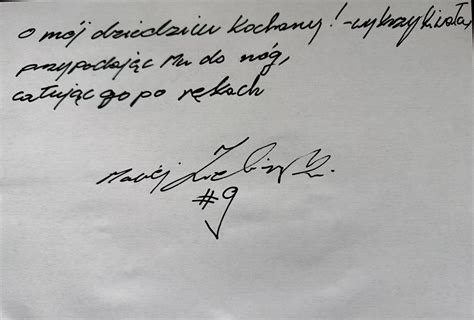 O mój dziedzicu kochany! - wykrzykiwała,
przypadając Mu do nóg,
całując go po rękach
Maciej
#9